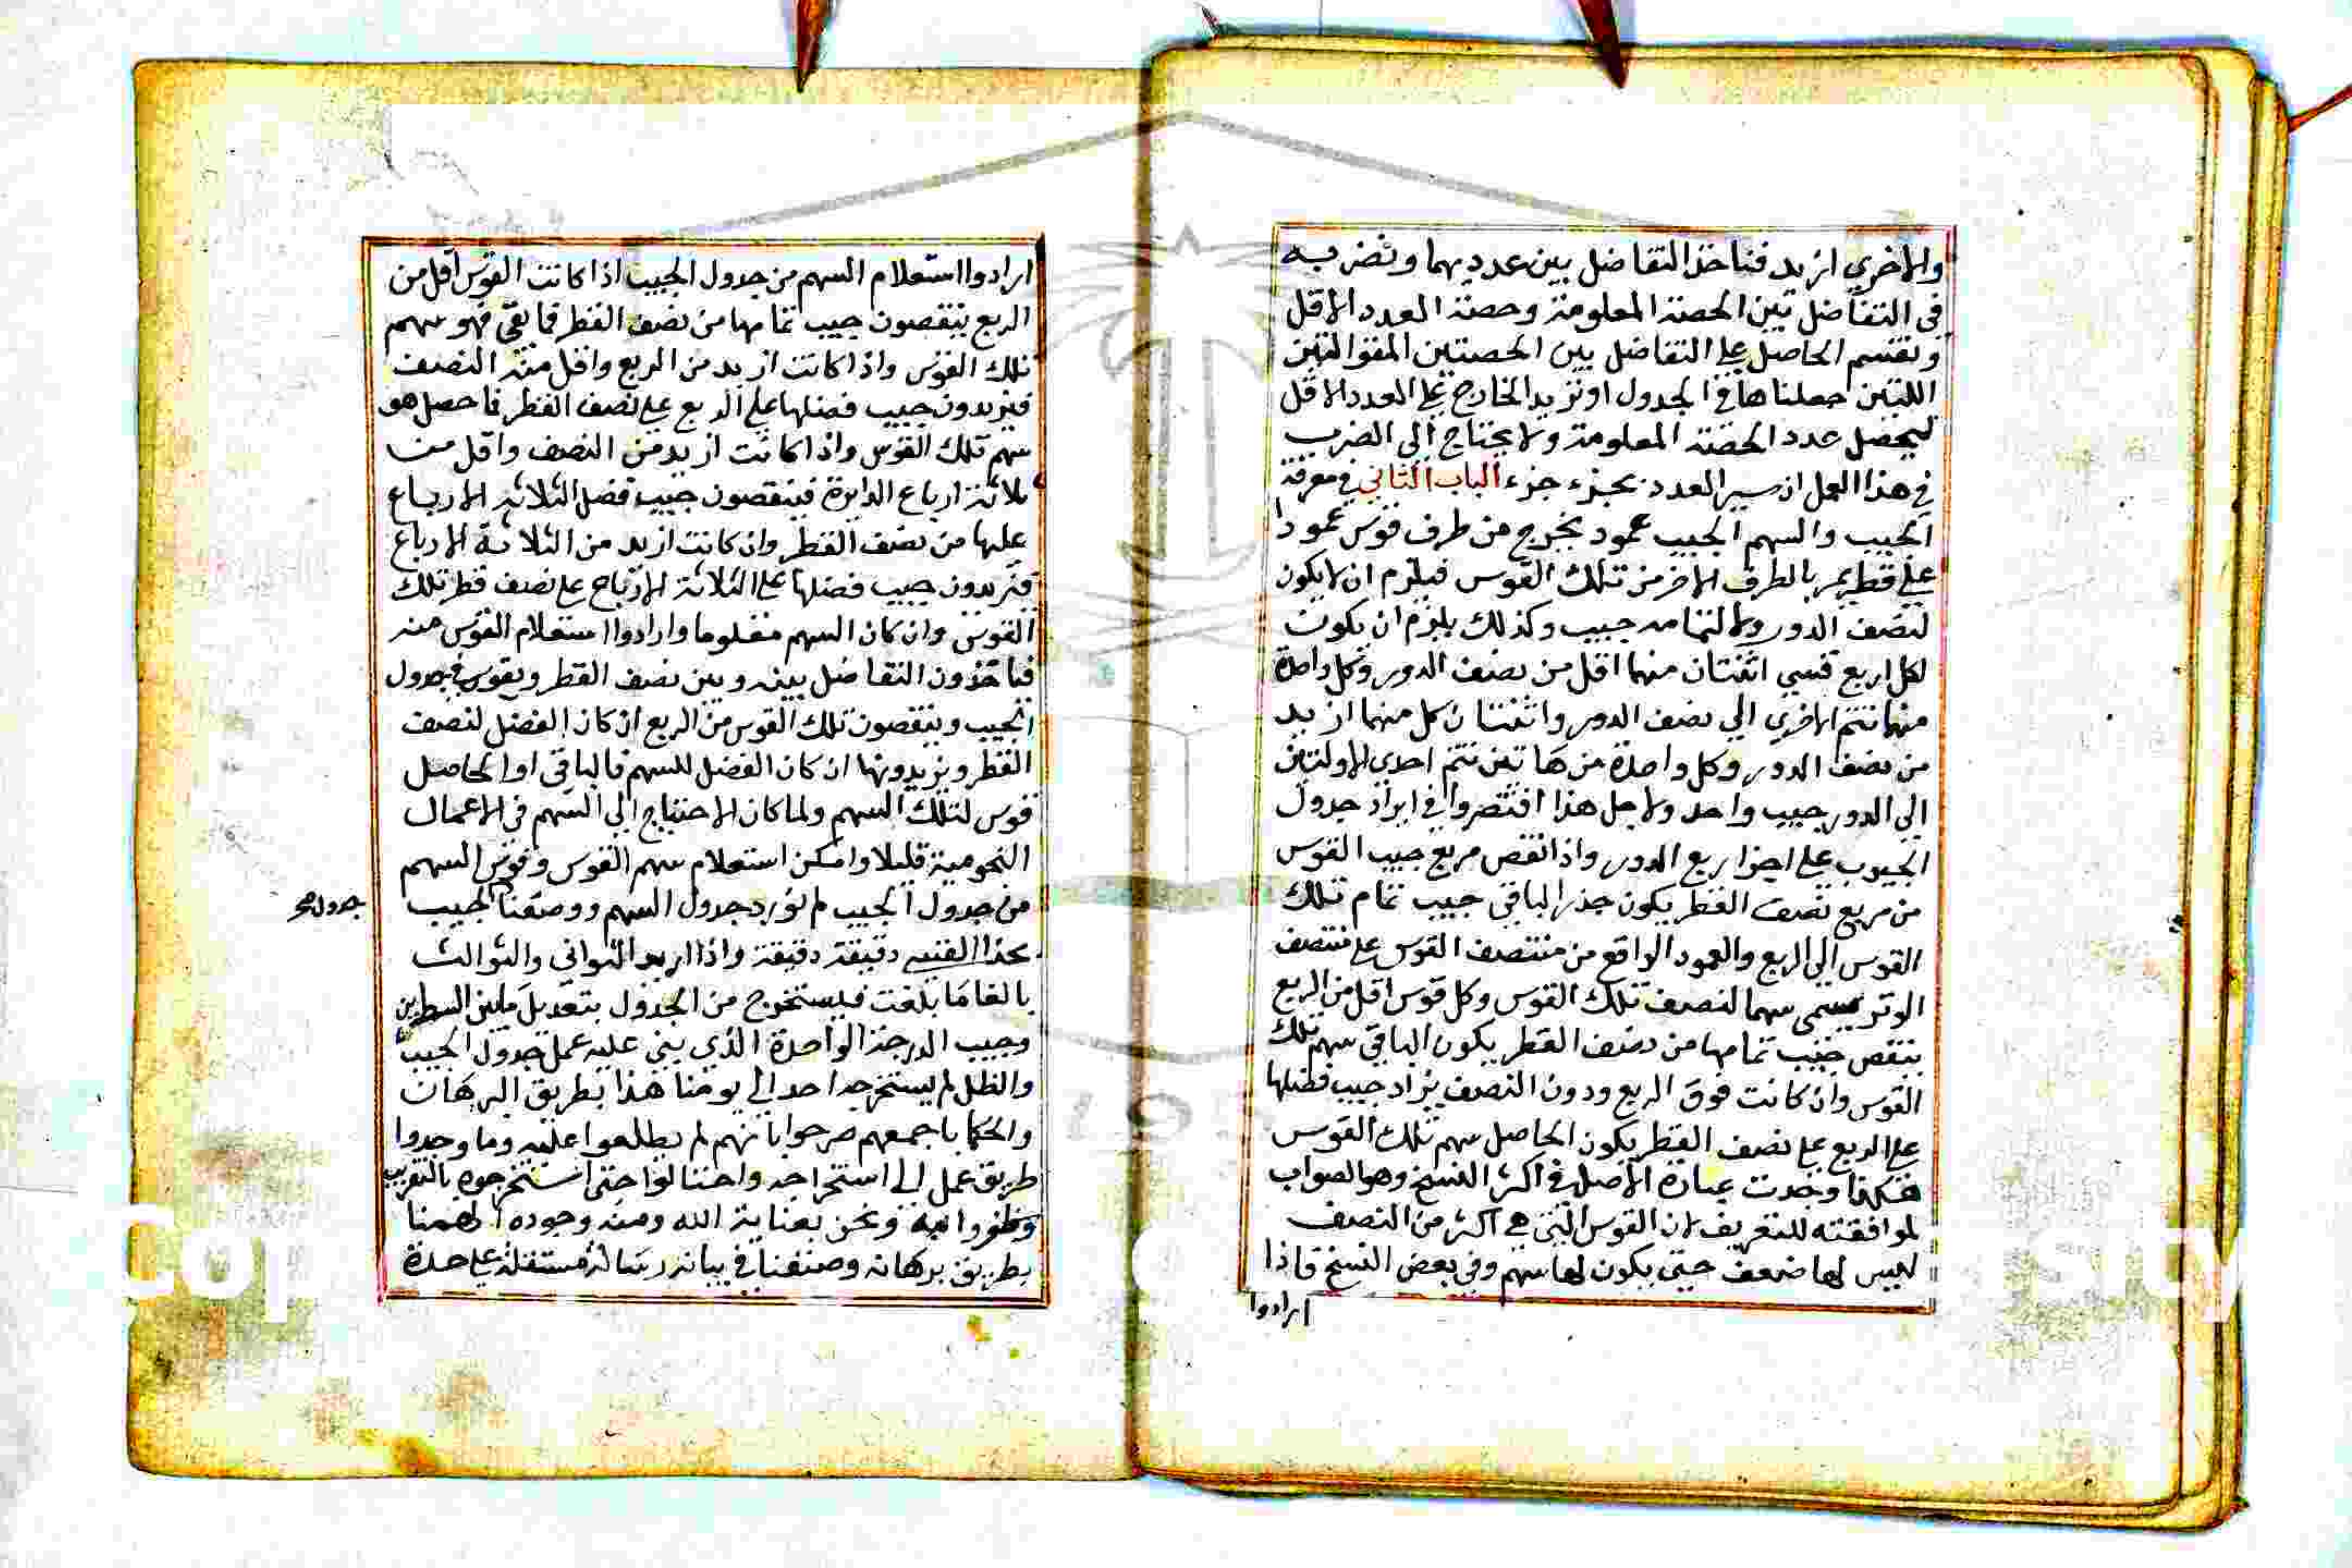 والاخري ازيد فناخذ التفاضل بين عدديهما ونضربه
في التفاضل بين الحصة المعلومة وحصة العدد الاقل
ونقسم الحاصل علي التفاضل بين الحصتين المتواليتين
اللتين جعلناها في الجدول او نزيد الخارج علي العدد الاقل
ليحصل عدد الحصة المعلومة ولا يحتاج الي الضرب
في هذا العمل ان سير العدد بجزء جزء الباب الثاني في معرفة
الجيب والسهم الجيب عمود يخرج من طرف قوس عمودا
علي قطر يمر بالطرف الاخر من تلك القوس فيلزم ان لا يكون
لنصف الدور ولا لتمامه جيب وكذلك يلزم ان يكون
لكل اربع قسي اثنتان منها اقل من نصف الدور وكل واحدة
منهما تتم الاخري الي نصف الدور واثنتان كل منهما ازيد
من نصف الدور وكل واحدة من هاتين تتم احدي الاولتين
الي الدور جيب واحد ولاجل هذا اقتصروا في ايراد جدول
الجيوب علي اجزا ربع الدور واذا نقص مربع جيب القوس
من مربع نصف القطر يكون جذر الباقي جيب تمام تلك
القوس الي الربع والعمود الواقع من منتصف القوس علي منتصف
الوتر يسمي سهما لنصف تلك القوس وكل قوس اقل من الربع
ينقص جيب تمامها من نصف القطر يكون الباقي سهم تلك
القوس وان كانت فوق الربع ودون النصف يزاد جيب فضلها
علي الربع علي نصف القطر يكون الحاصل سهم تلك القوس
هكذا وجدت عبارة الاصل في اكثر النسخ وهو الصواب
لموافقته للتعريف لان القوس التي هي اكثر من النصف
ليس لها ضعف حتي يكون لها سهم وفي بعض النسخ فاذا
ارادوا
ارادوا استعلام السهم من جدول الجيب اذا كانت القوس اقل من
الربع ينقصون جيب تمامها من نصف القطر فما بقي فهو سهم
تلك القوس واذا كانت ازيد من الربع واقل من النصف
فيزيدون جيب فضلها علي الربع علي نصف القطر فما حصل هو
سهم تلك القوس واذا كانت ازيد من النصف واقل من
ثلاثة ارباع الدايرة فينقصون جيب فضل الثلاثة الارباع
عليها من نصف القطر وان كانت ازيد من الثلاثة الارباع
فيزيدون جيب فضلها علي الثلاثة الارباع علي نصف قطر تلك
القوس وان كان السهم معلوما وارادوا استعلام القوس منه
فياخذون التفاضل بينه وبين نصف القطر ويقوس في جدول
الجيب وينقصون تلك القوس من الربع ان كان الفضل لنصف
القطر ويزيدونها ان كان الفضل للسهم فالباقي او الحاصل
قوس لتلك السهم ولما كان الاحتياج الي السهم في الاعمال
النجومية قليلا وامكن استعلام سهم القوس وقوس السهم
من جدول الجيب لم نورد جدول السهم ووضعنا الجيب
جدول صح
دقيقة دقيقة واذا اريد الثواني والثوالث
بالغا ما بلغت فيستخرج من الجدول بتعديل ما بين السطرين
وجيب الدرجة الواحدة الذي يبني عليه عمل جدول الجيب
والظل لم يستخرجه احد الي يومنا هذا بطريق البرهان
والحكما باجمعهم صرحوا بانهم لم يطلعوا عليه وما وجدوا
طريق عمل الي استخراجه واحتالوا حتي استخرجوه بالتقريب
وظفروا به ونحن بعناية الله ومنه وجوده الهمنا
بطريق برهانه وصنفنا في بيانه رسالة مستقلة علي حدة